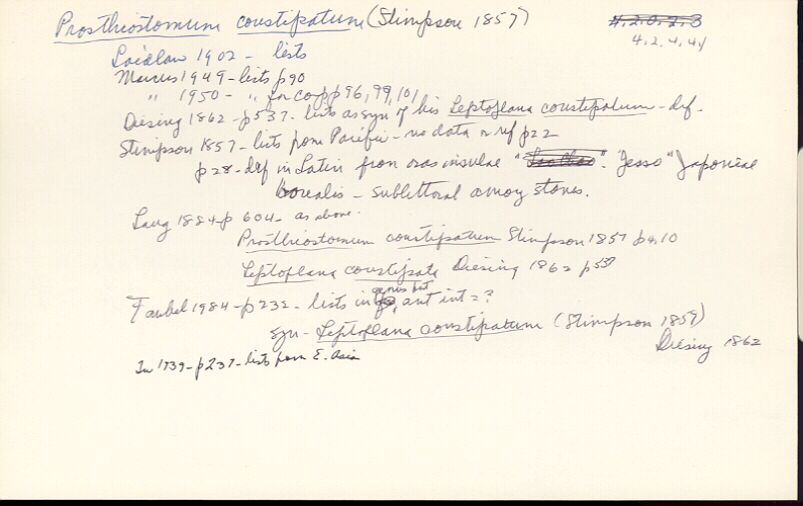 Prosthiostomum constipatum (Stimpson 1857)
4.2.0.2.3
4.2.4.41
Laidlaw 1902 - lists
Marcus 1949 - lists p90
" 1950 - " for co pp 96, 99, 101
Diesing 1862 - p537 - lists as syn of his Leptoplana constipatum - def.
Stimpson 1857 - lists from Pacific - no data or ref p22
p28 - def in Latin from oras insulae " ". "Jesso" Japoniae
borealis - sublittoral among stones.
Lang 1884 - p 604 - as above.
Prosthiostomum constipatum Stimpson 1857 p4,10
Leptoplana constipata Diesing 1862 p537
Faubel 1984 - p232 - lists in genus but ant int = ?
syn - Leptoplana constipatum (Stimpson 1857)
Diesing 1862
1939 - p237 - lists from E. Asia